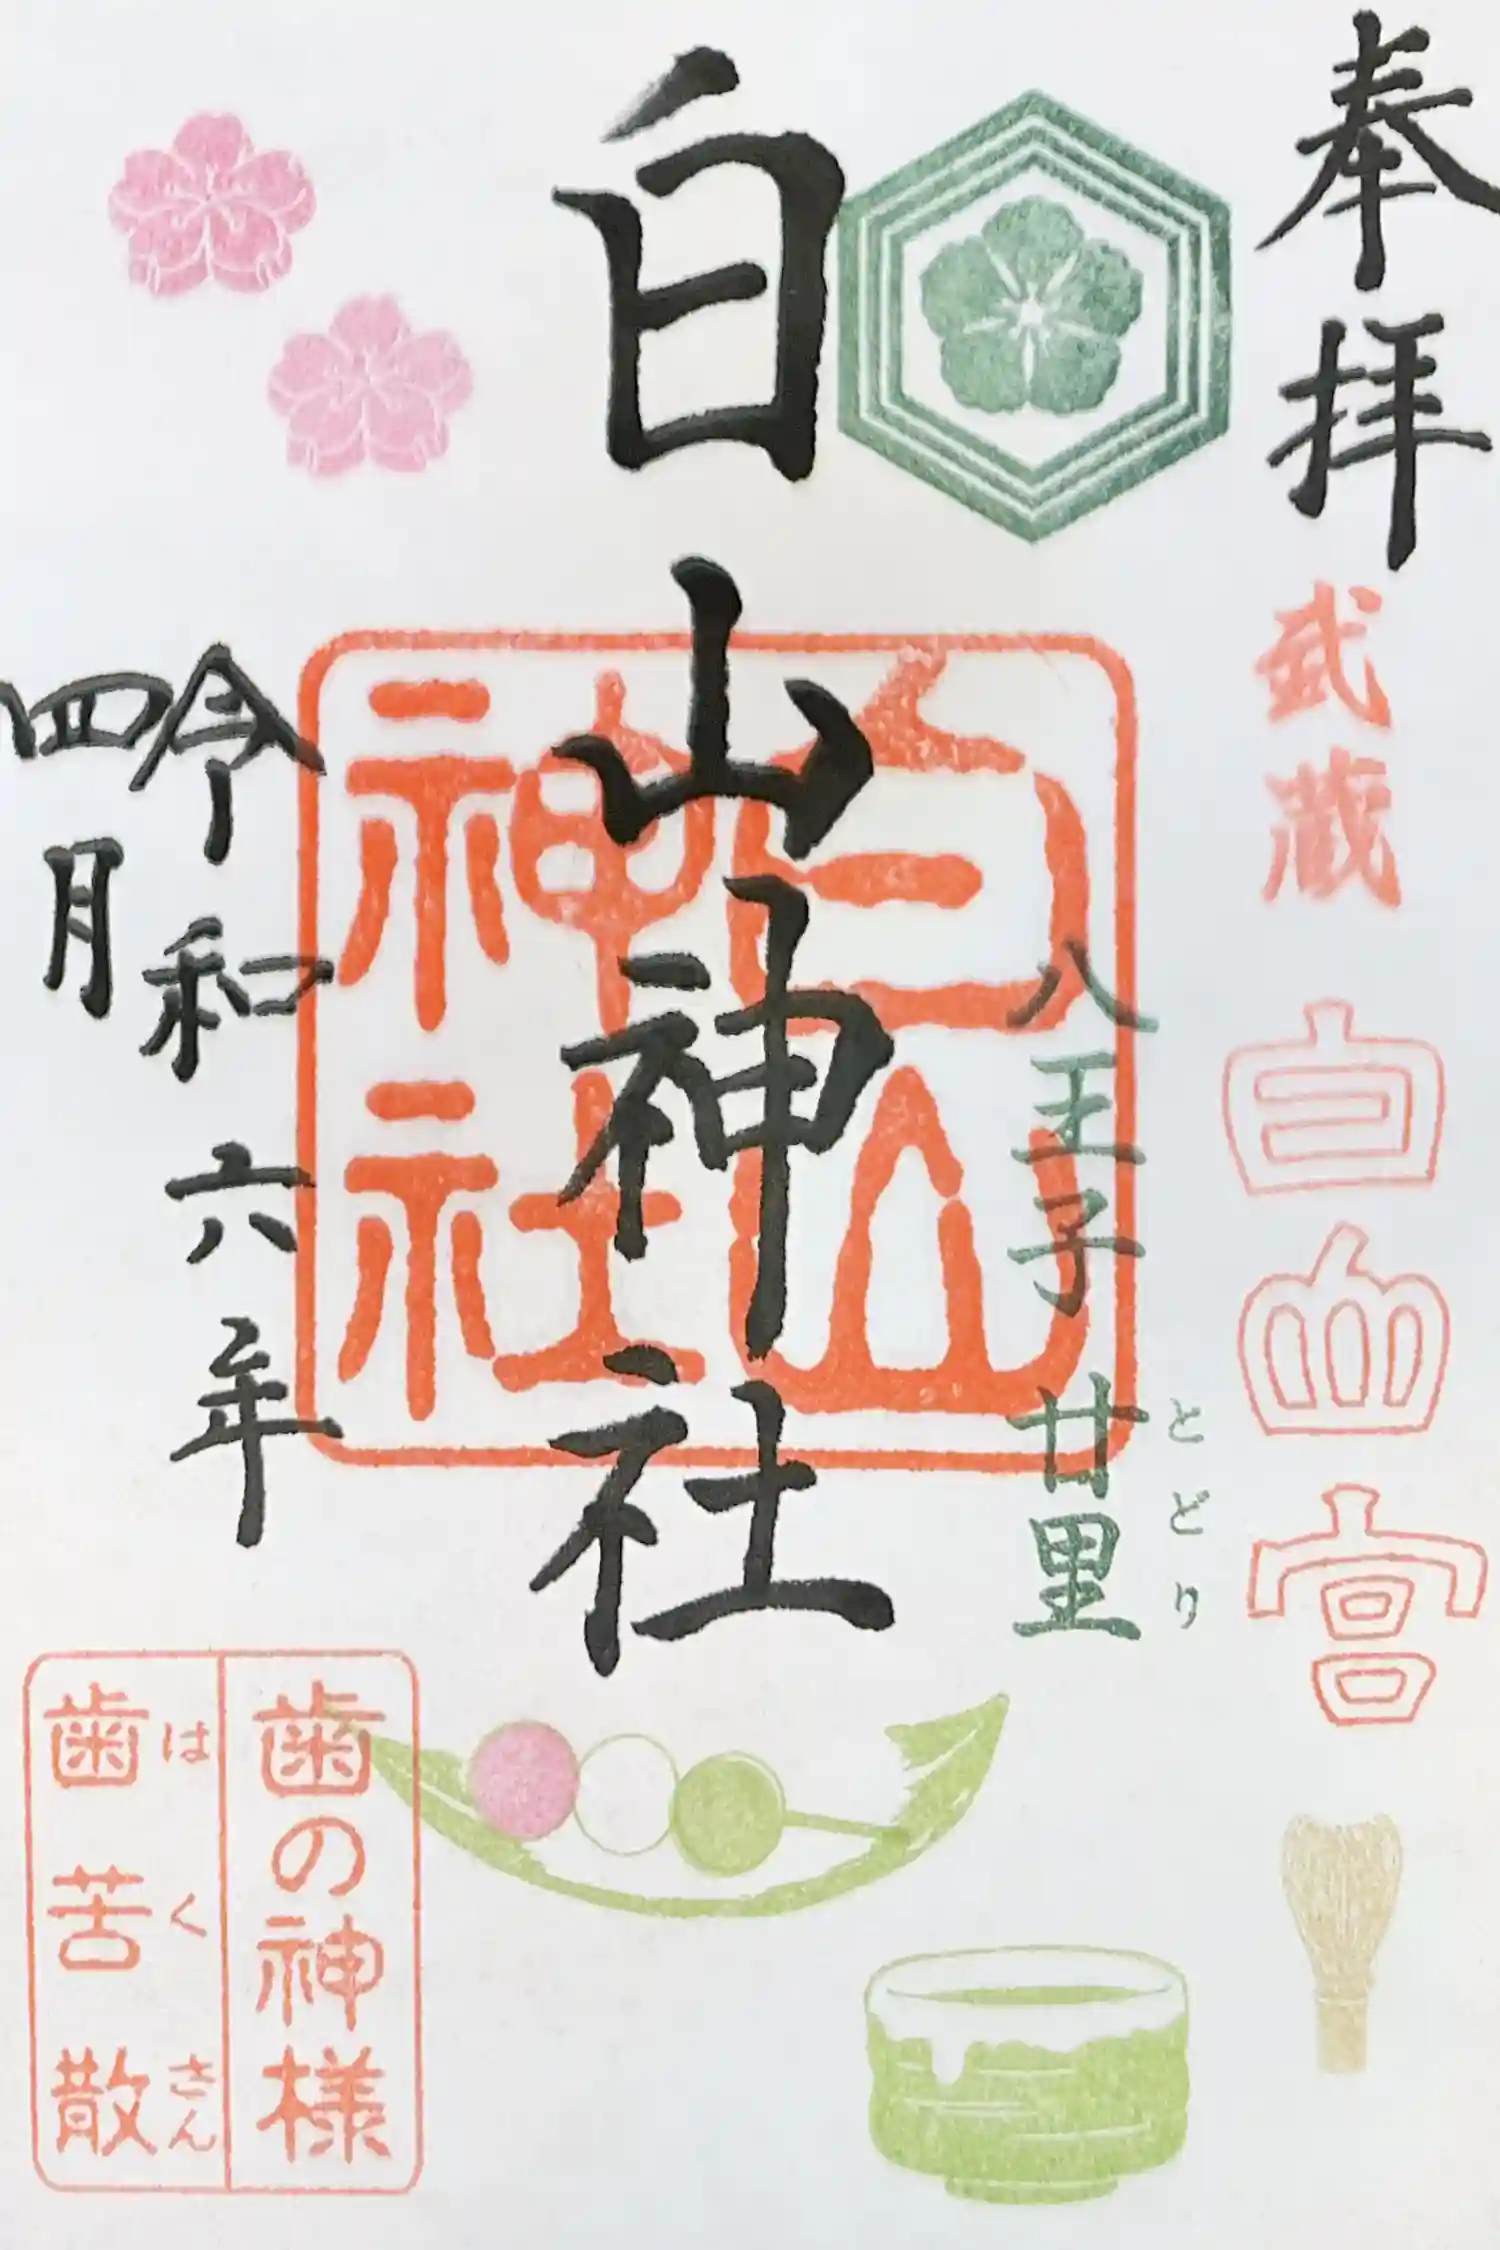 奉拝
武蔵
白山宮
とどり
八王子 廿里
白山神社
白山
神社
令和六年
四月
歯の神様
はくさん
歯苦散